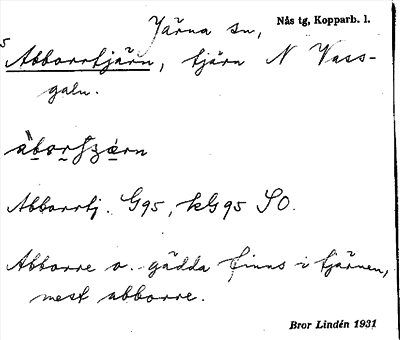 Järna sn, Nås tg, Kopparb. l.
5
Abborrtjärn, tjärn N Vass-
galn.
Abborrtj. G95, kG95 SO.
Abborre o. gädda finns i tjärnen,
mest abborre.
Bror Lindén 1931